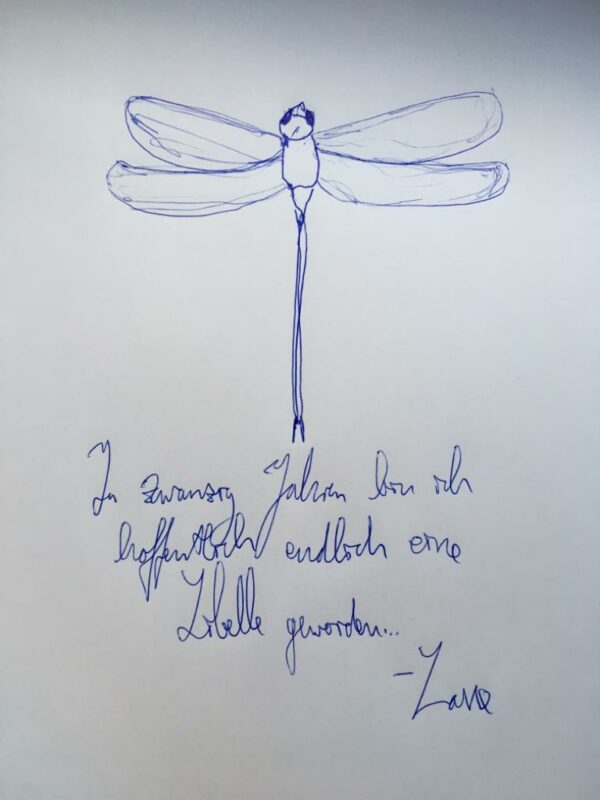 In zwanzig Jahren bin ich
hoffentlich endlich eine
Libelle geworden...